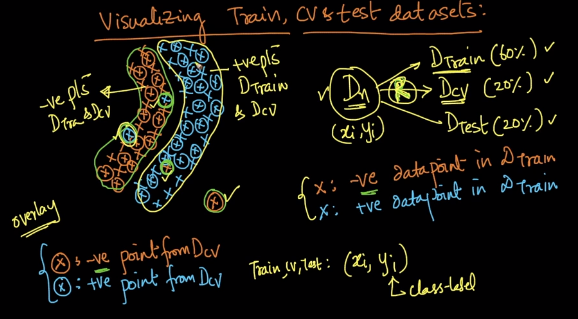 Visualizing Train, CV & test datasets:
-ve pts
DTra & DCV
+ve pts
DTrain
& DCV
Dn
(xi, yi)
R
DTrain (60%) ✓
DCV (20%) ✓
DTest (20%) ✓
x: -ve datapoint in DTrain
x: +ve datapoint in DTrain
overlay
ⓧ: -ve point from DCV
ⓧ: +ve point from DCV
Train, CV, Test: (xi, yi)
class-label